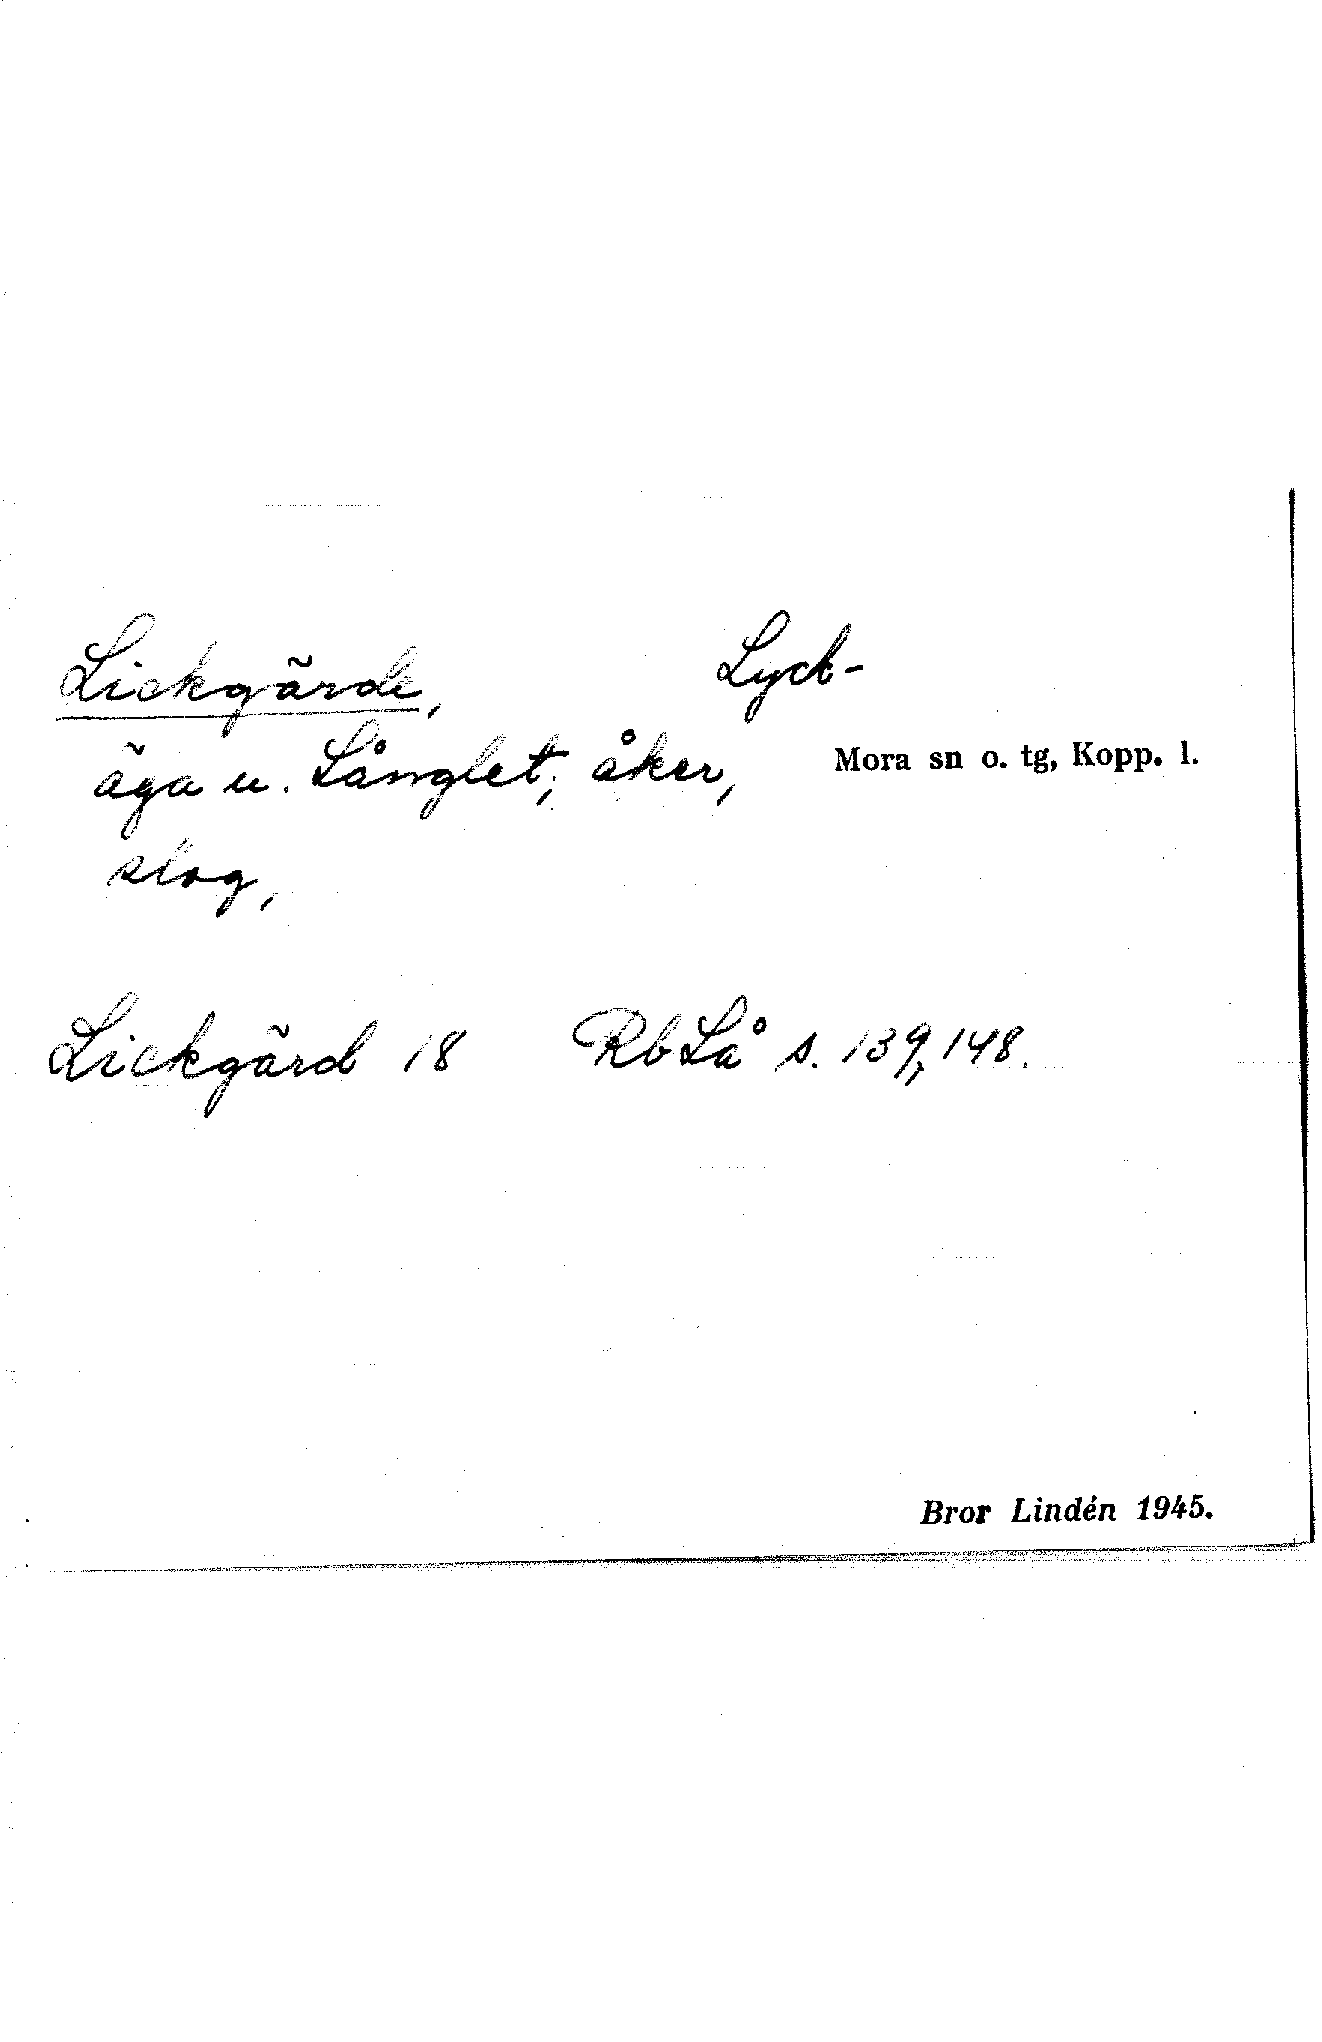 Lickgärde, Lyck-
äga u. Långlet; åker, Mora sn o. tg, Kopp. l.
slog,
Lickgärd 18 Rb Lå s. 139, 148.
Bror Lindén 1945.